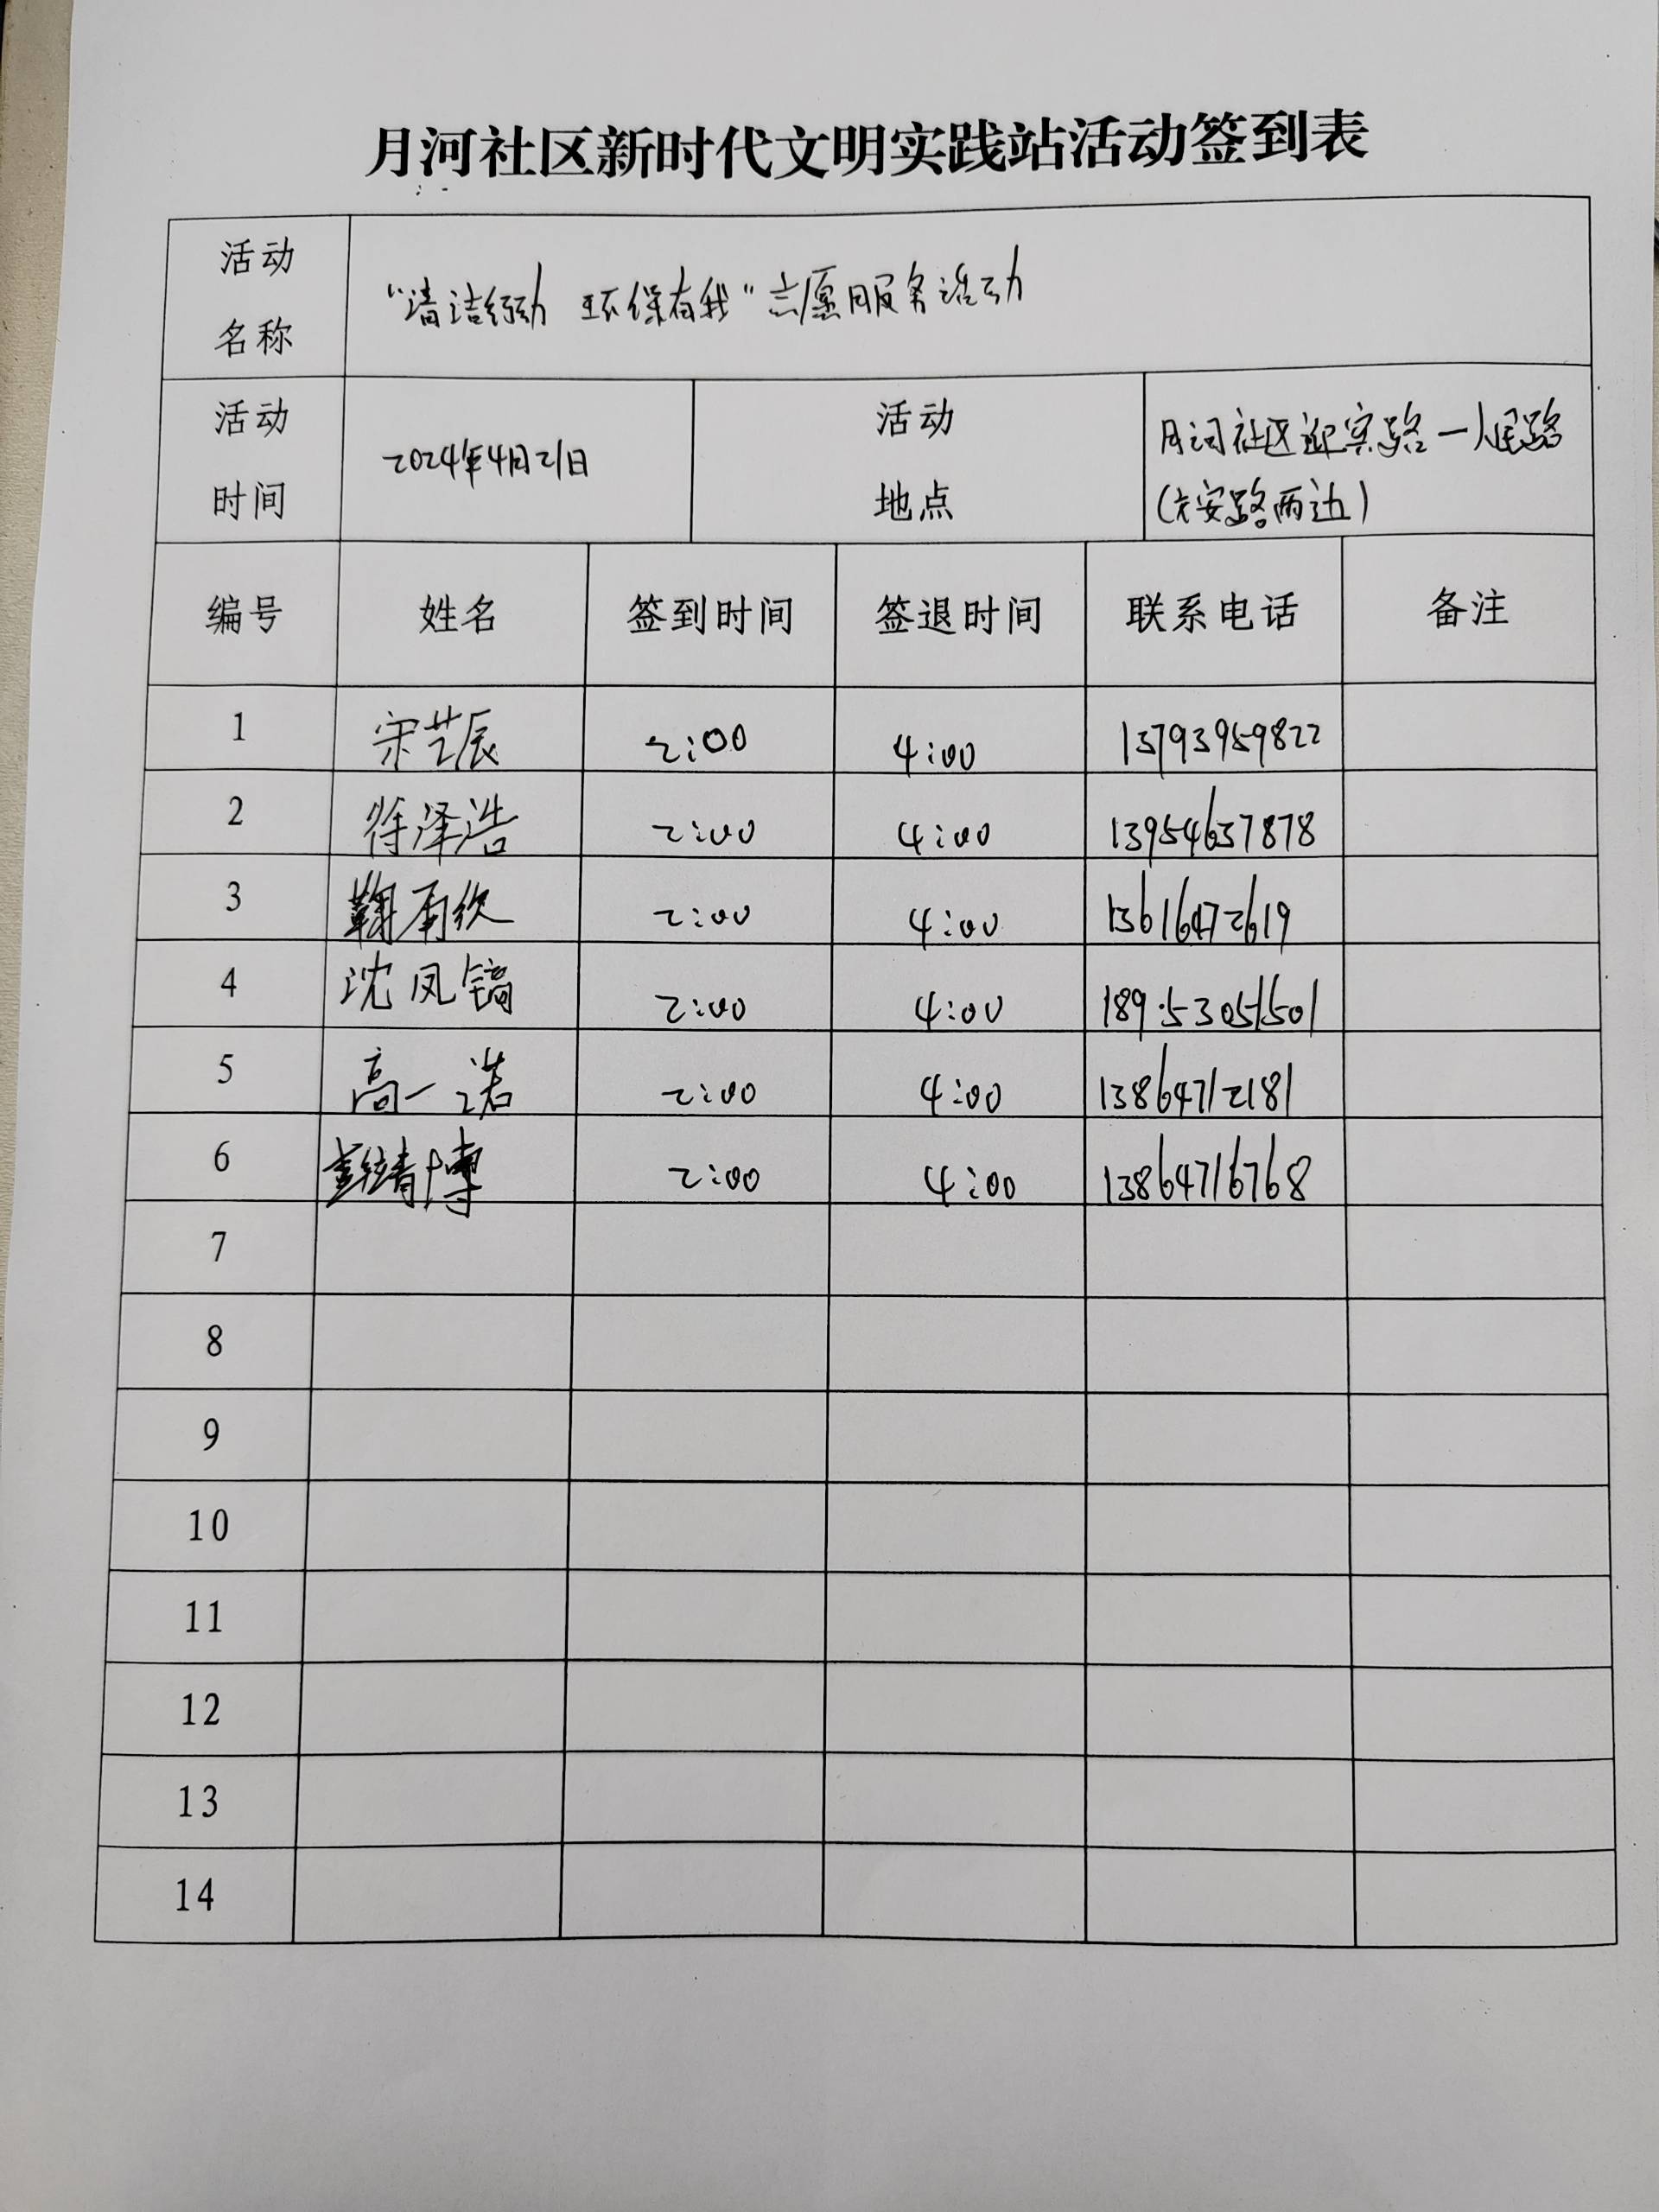 月河社区新时代文明实践站活动签到表
活动名称 "清洁行动 环保有我"志愿服务活动
活动时间 2024年4月21日 活动地点 月河社区迎宾路一人民路
(六安路两边)
编号 姓名 签到时间 签退时间 联系电话 备注
1 宋艺辰 2:00 4:00 13793959822
2 徐泽浩 2:00 4:00 13954637878
3 2:00 4:00 13616472619
4 沈凤镐 2:00 4:00 18953051501
5 高一诺 2:00 4:00 13864712181
6 2:00 4:00 13864716768
7
8
9
10
11
12
13
14